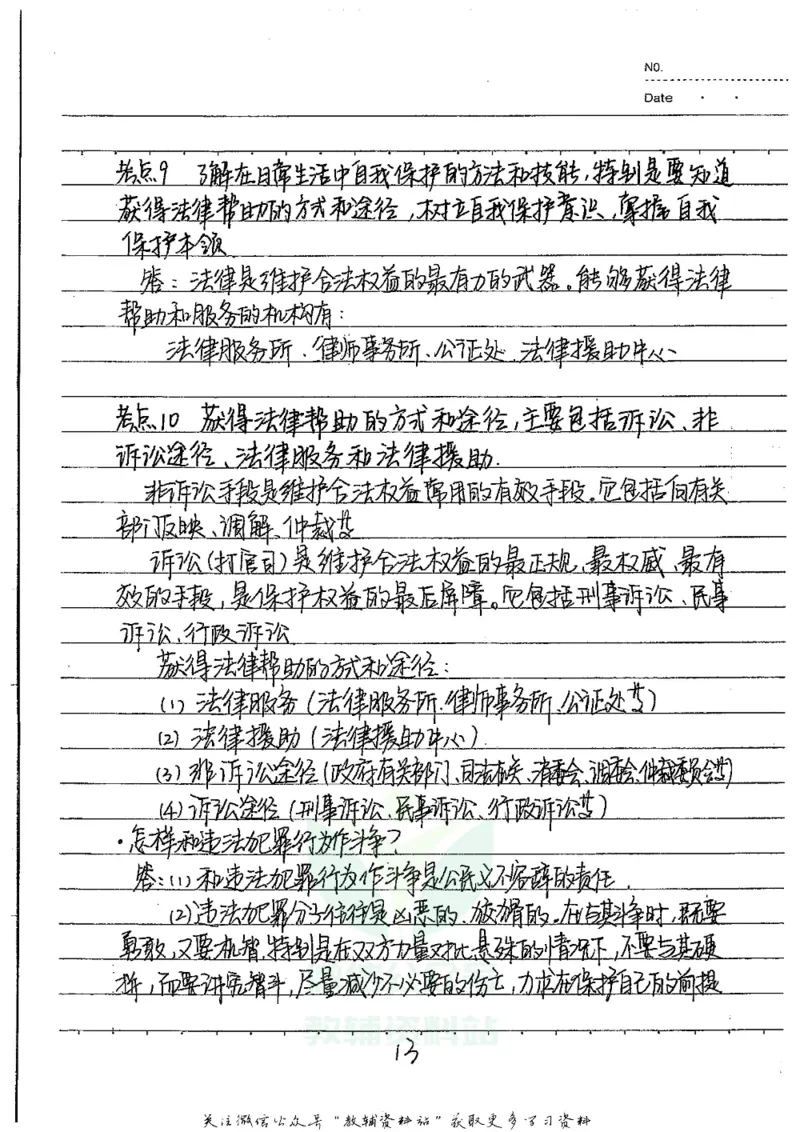 NO.
Date
考点9 了解在日常生活中自我保护的方法和技能,特别是要知道
获得法律帮助的方式和途径,树立自我保护意识,掌握自我
保护本领
答:法律是维护合法权益的最有力的武器。能够获得法律
帮助和服务的机构有:
法律服务所、律师事务所、公证处、法律援助中心
考点10 获得法律帮助的方式和途径,主要包括诉讼、非
诉讼途径、法律服务和法律援助.
非诉讼手段是维护合法权益常用的有效手段。它包括向有关
部门反映、调解、仲裁等
诉讼(打官司)是维护合法权益的最正规、最权威、最有
效的手段,是保护权益的最后屏障。它包括刑事诉讼、民事
诉讼、行政诉讼
获得法律帮助的方式和途径:
(1) 法律服务(法律服务所、律师事务所、公证处等)
(2) 法律援助(法律援助中心)
(3) 非诉讼途径(政府有关部门、司法机关、消委会、调委会、仲裁委员会等)
(4) 诉讼途径(刑事诉讼、民事诉讼、行政诉讼等)
·怎样和违法犯罪行为作斗争?
答:(1)和违法犯罪行为作斗争是公民义不容辞的责任.
(2)违法犯罪分子往往是凶恶的、狡猾的。在与其斗争时,既要
勇敢,又要机智.特别是在双方力量对比悬殊的情况下,不要与其硬
拼,而要讲究智斗,尽量减少不必要的伤亡,力求在保护自己的前提
教辅资料站
13
关注微信公众号"教辅资料站"获取更多学习资料